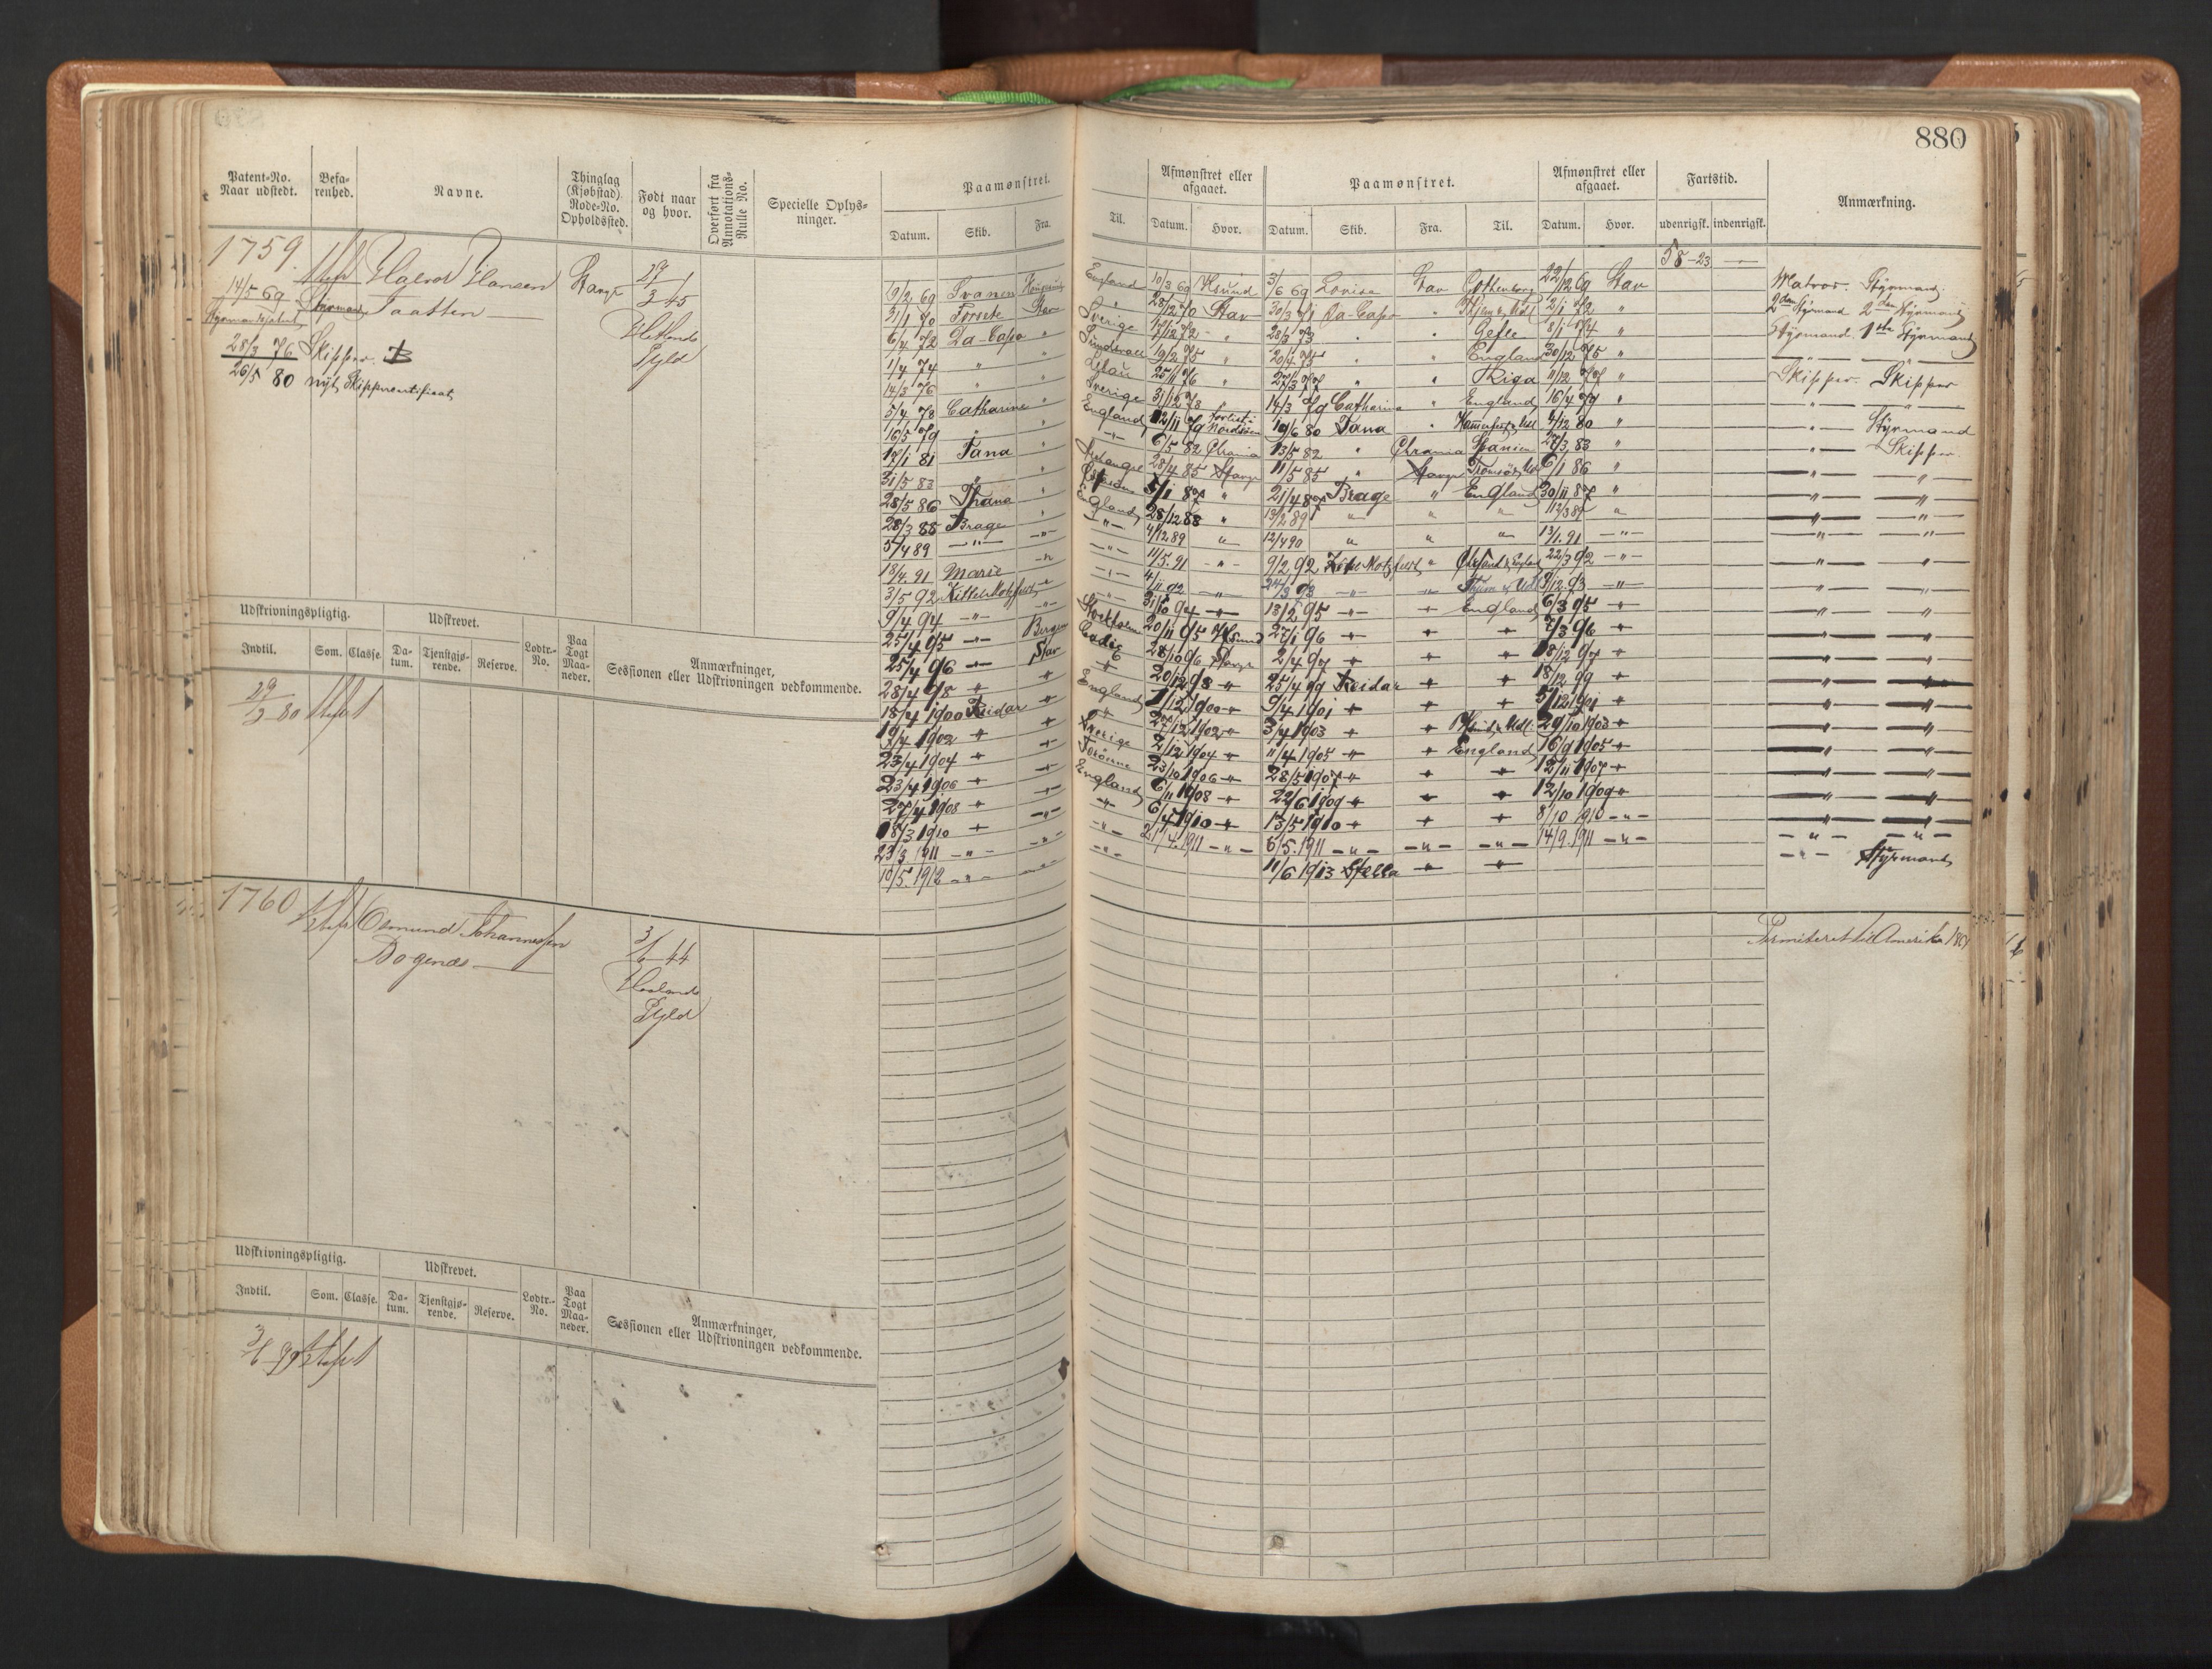 880
Patent-No. Naar udstedt.
Befa-renhed.
Navne.
Thinglag (Kjøbstad) Rode-No. Opholdssted.
Født naar og hvor.
Overført fra Annotations-Rulle No.
Specielle Oplys-ninger.
Paamønstret.
Datum. Skib. Fra. Til.
Afmønstret eller afgaaet.
Datum. Hvor.
Paamønstret.
Datum. Skib. Fra. Til.
Afmønstret eller afgaaet.
Datum. Hvor.
Fartstid.
udenrigsk. indenrigsk.
Anmærkning.
1759.
Halvor Hansen
Taatten
Stavgr
29/3 45
Hetlands
Pgld
14/5 69
Styrmand
28/3 76 Skipper. B
26/5 80 nyt Skippercertificat
58-23
9/2 69 Svanen England 10/3 69 Hsund 3/6 69 Lovise Stav Gottenborg 22/12 69 Stav Matros. Styrmand.
31/1 70 Forsete Stav " 28/12 70 Stav 30/3 71 Da-Capo " 2/1 72 " 2den Styrmand 2den Styrmand
6/4 72 Da-Capo " Sverige 17/12 72 " 28/3 73 " " Gefle 8/1 74 " Styrmand 1ste Styrmand
1/4 74 " " Sundsvall 19/2 75 " 20/4 75 " " England 30/12 75 "
14/3 76 " " Libau 25/11 76 " 27/3 77 " " Riga 11/12 77 " Skipper. Skipper
5/4 78 Catharine " Sverige 31/12 78 " 14/3 79 Catharina " England 16/4 79 "
16/5 79 " " England 12/11 79 Forlist i Nordsøen 19/6 80 Tana " Hammerfest & Udl 4/12 80 " Styrmand
17/1 81 Tana " " 6/5 82 Chrania 13/5 82 " Chrania Spanien 27/3 83 " Skipper.
31/5 83 " " Archangel 28/4 85 Stavgr 11/5 85 " Stavgr Tromsö & Udl 6/1 86 "
28/5 86 Thana " 5/1 87 " 21/4 87 Brage " England 30/11 87 "
28/3 88 Brage " England 28/12 88 " 13/2 89 " " " 11/3 89 "
5/4 89 " " " 4/12 89 " 12/4 90 " " " 13/1. 91 "
18/4. 91 Marie " " 11/5. 91 " 9/2 92 " 22/3 92 "
3/5 92 " " 4/11 92 " 24/3 93 " " 9/12 93 "
9/4 94 " " " 31/10 94 " 18/2 95 " " England 6/3 95 "
25/4 95 " Bergen Stockholm 20/11 95 Hsund 27/1 96 " " " 7/3 96 "
25/4 96 " Stav Cadiz 28/10 96 Stavgr 2/4 97 " " " 18/12 97 "
28/4 98 " " " 20/12 98 " 25/4 99 Reidar " " 18/12 99 "
18/4 1900 Reidar " England 1/12 1900 " 9/4 1901 " " " 5/12 1901 "
19/4 1902 " " " 27/12 1902 " 3/4 1903 " " 29/10 1903 "
23/4 1904 " " Sverige 2/12 1904 " 11/4 1905 " " England 16/9 1905 "
23/4 1906 " " Færöerne 23/10 1906 " 28/5 1907 " " " 12/11 1907 "
27/4 1908 " " England 6/11 1908 " 22/6 1909 " " " 12/10 1909 "
18/3 1910 " " " 6/4 1910 " 13/5 1910 " " " 8/10 1910 "
23/3 1911 " " " 21/4. 1911 " 6/5. 1911 " " " 14/9. 1911 "
10/5. 1912 " " " 11/6 1913 Stella " " Styrmand
Udskrivningspligtig.
Indtil. Som. Classe.
Udskrevet.
Da-tum. Tjenstgjø-rende. Reserve.
Lodtr.-No.
Paa Togt Maa-neder.
Anmærkninger, Sessionen eller Udskrivningen vedkommende.
29/3 80
1760
Osmund Johannessen
Bogenes
3/6 44
Haalands
Pgld
Permiteret til Amerika
Udskrivningspligtig.
Indtil. Som. Classe.
Udskrevet.
Da-tum. Tjenstgjø-rende. Reserve.
Lodtr.-No.
Paa Togt Maa-neder.
Anmærkninger, Sessionen eller Udskrivningen vedkommende.
3/6 79